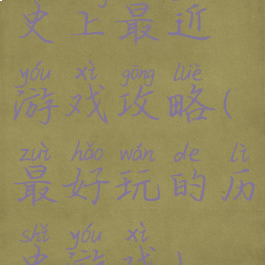 史上最近
yóu xì gōng lüè
游戏攻略(
zuì hǎo wán de lì
最好玩的历
shǐ yóu xì
史游戏)